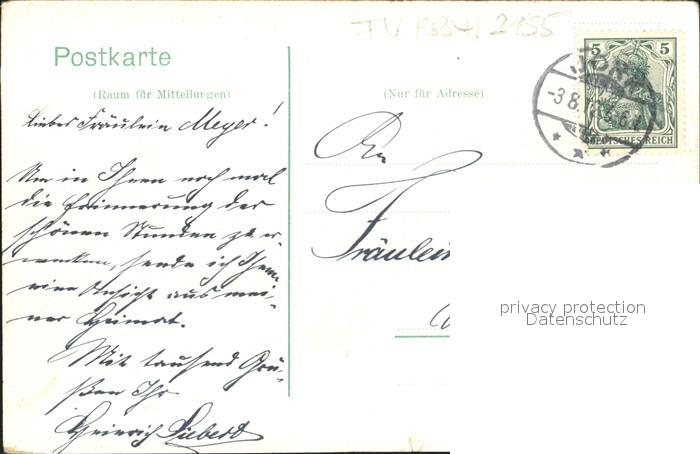 Postkarte
(Raum für Mitteilungen)
(Nur für Adresse)
5 5
DEUTSCHES REICH
Liebes Fräulein Meyer!
Um in Ihnen noch mal
die Erinnerung der
schönen Stunden zu er-
wecken, sende ich Ihnen
eine Ansicht aus mei-
ner Heimat.
Mit tausend Grü-
ßen Ihr
Heinrich Siebert
An
Fräulein
privacy protection
Datenschutz